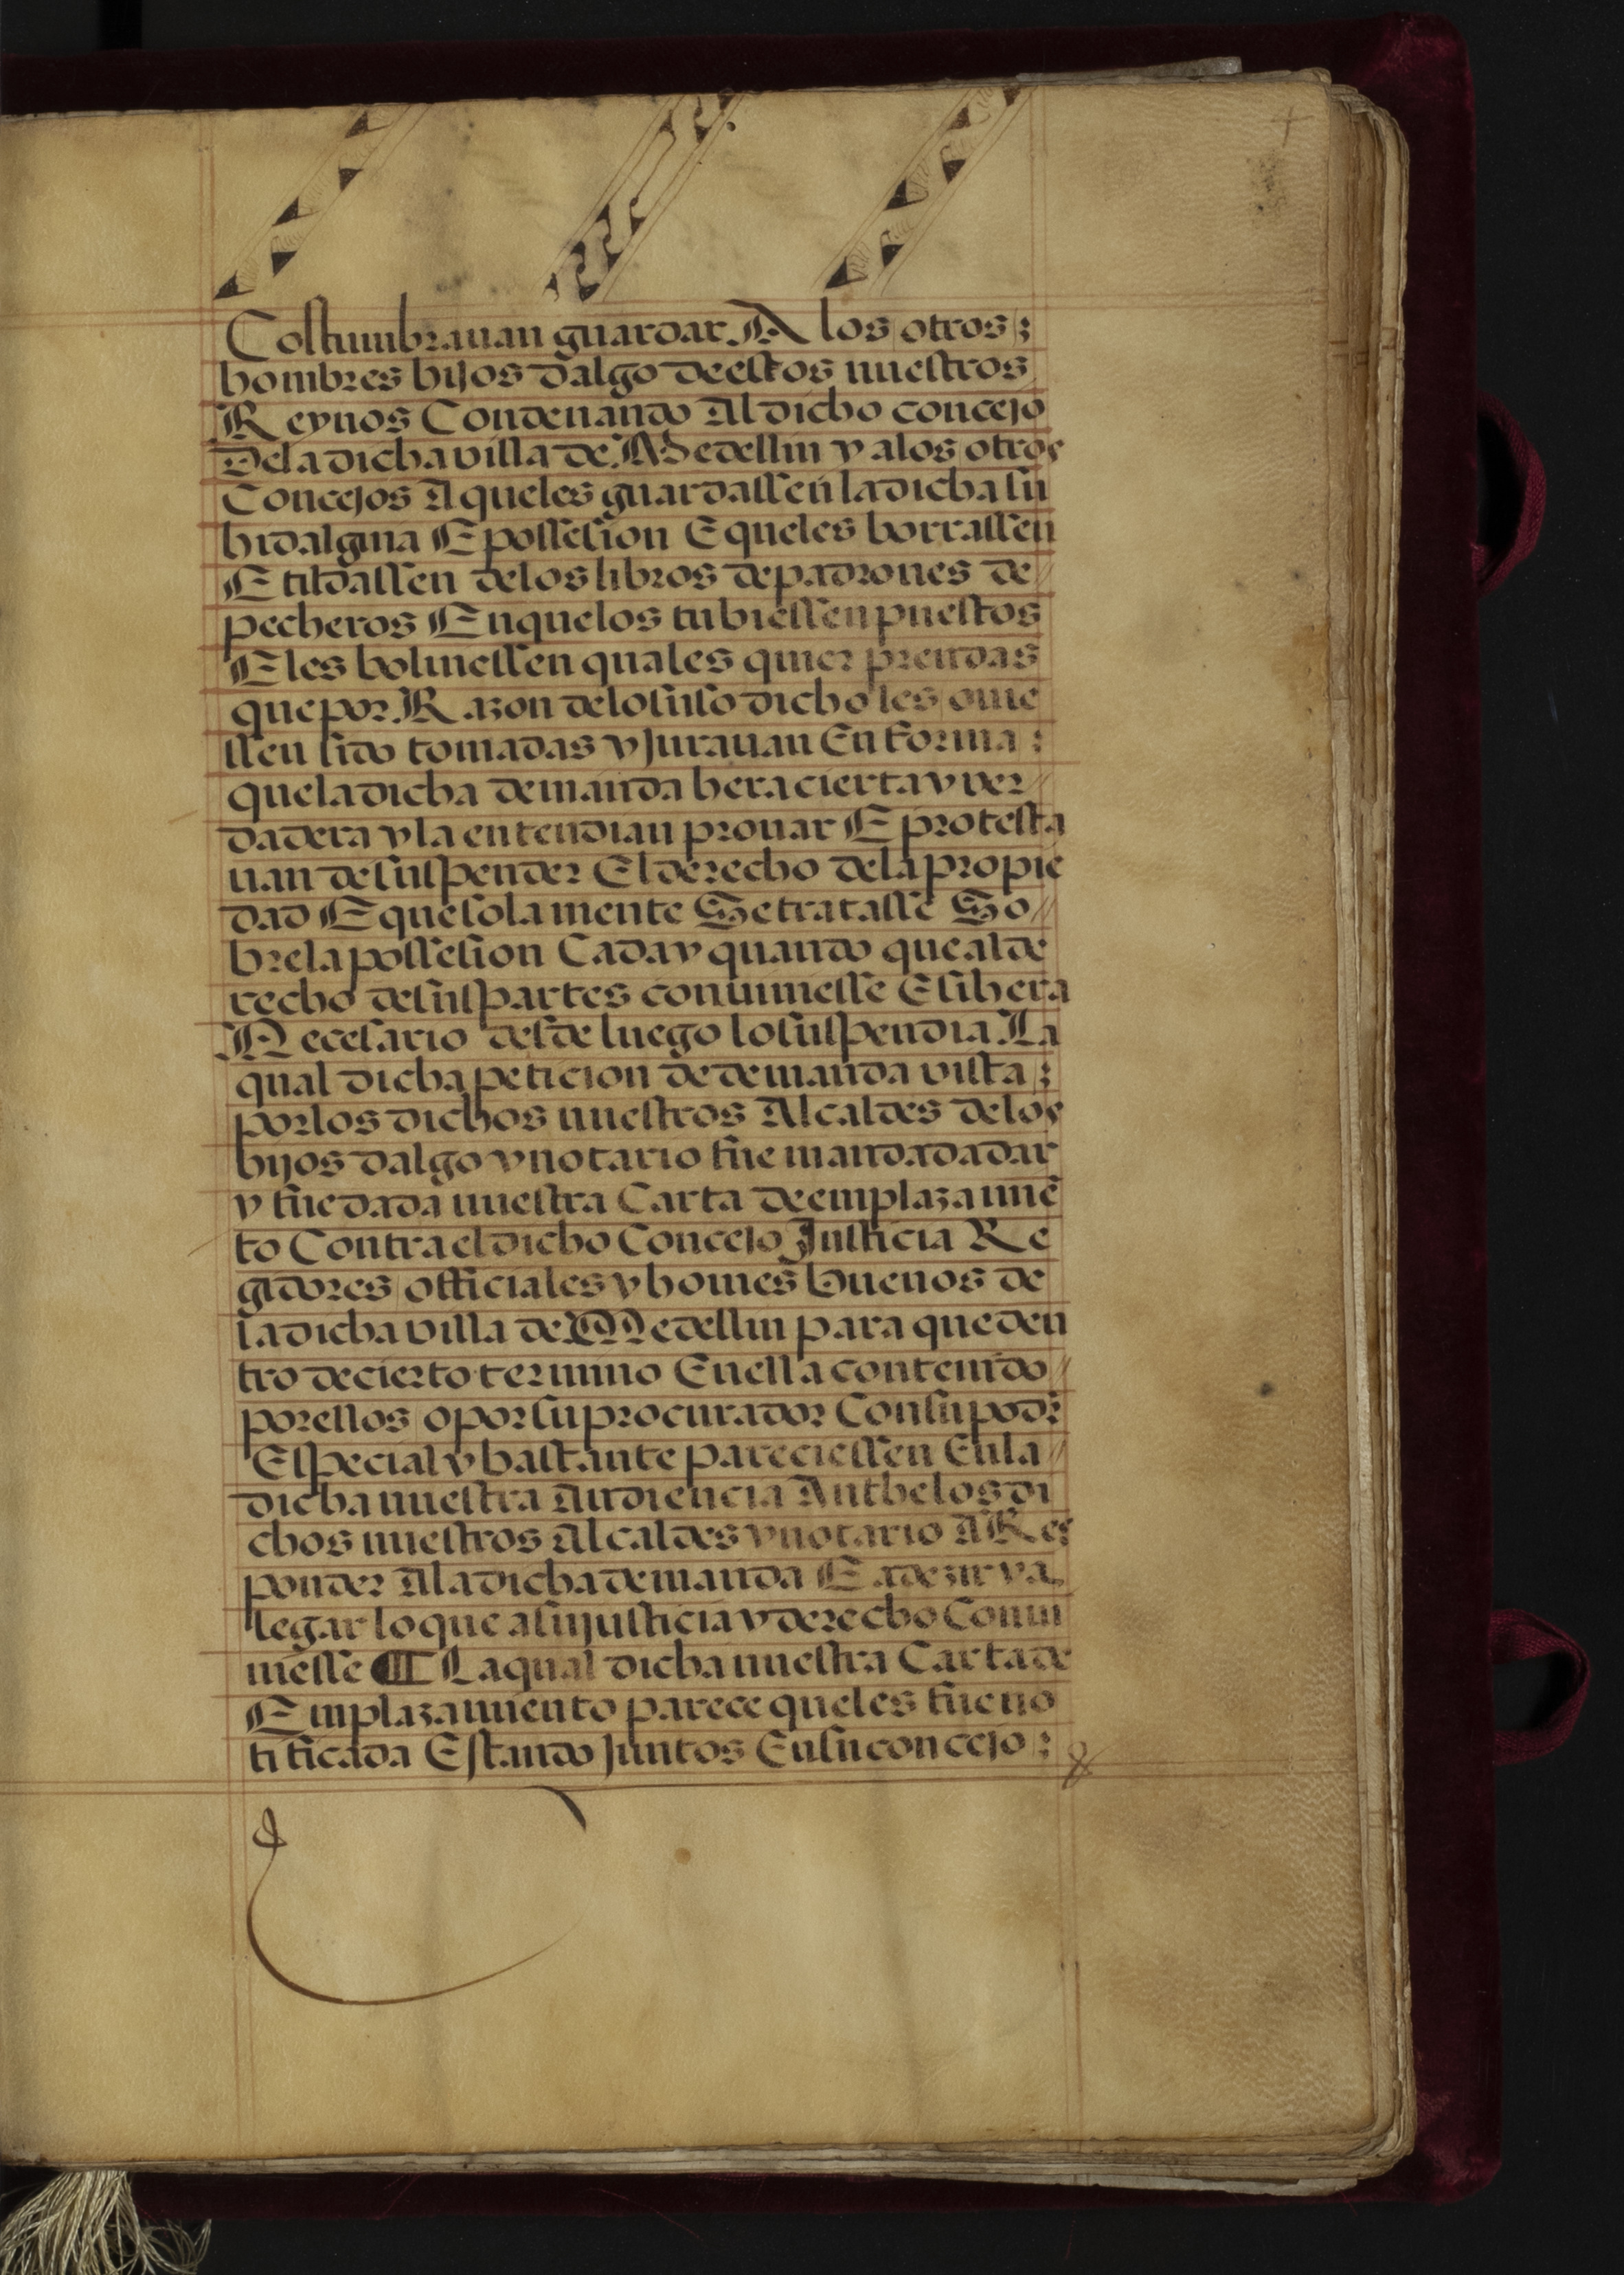 Costumbrauan guardar A los otros;
hombres hijos dalgo deestos nuestros
Reynos Condenando Al dicho concejo
Dela dicha villa de Medellin y alos otros
Concejos A queles guardassen la dicha su
hidalguia E possesion E queles borrassen
E tildassen delos libros depadrones de
pecheros Enquelos tubiessen puestos
E les boluiessen quales quier prendas
que por Razon delo suso dicho les ouie
ssen sido tomadas y Jurauan En forma:
quela dicha demanda hera cierta y ver
dadera y la entendian prouar E protesta
uan desuspender El derecho dela propie
dad E que sola mente Se tratasse So
bre la possesion Cada y quando que al de
recho de sus partes conuiniesse E si hera
Necesario desde luego lo suspendia La
qual dicha peticion de demanda vista;
por los dichos nuestros Alcaldes delos
hijos dalgo y notario fue mandada dar
y fue dada nuestra Carta de emplazamiē
to Contra el dicho Concejo Justicia Re
gidores officiales y homes buenos de
la dicha villa de Medellin para que den
tro de cierto termino En ella contenido
por ellos o por su procurador Con su podr̄
Especial y bastante pareciessen En la
dicha nuestra Audiencia Anthe los di
chos nuestros Alcaldes y notario A Res
ponder A la dicha demanda E a dezir y a
legar lo que a su justicia y derecho Conui
niesse ¶ La qual dicha nuestra Carta de
Emplazamiento parece que les fue no
tificada Estando juntos En su concejo: